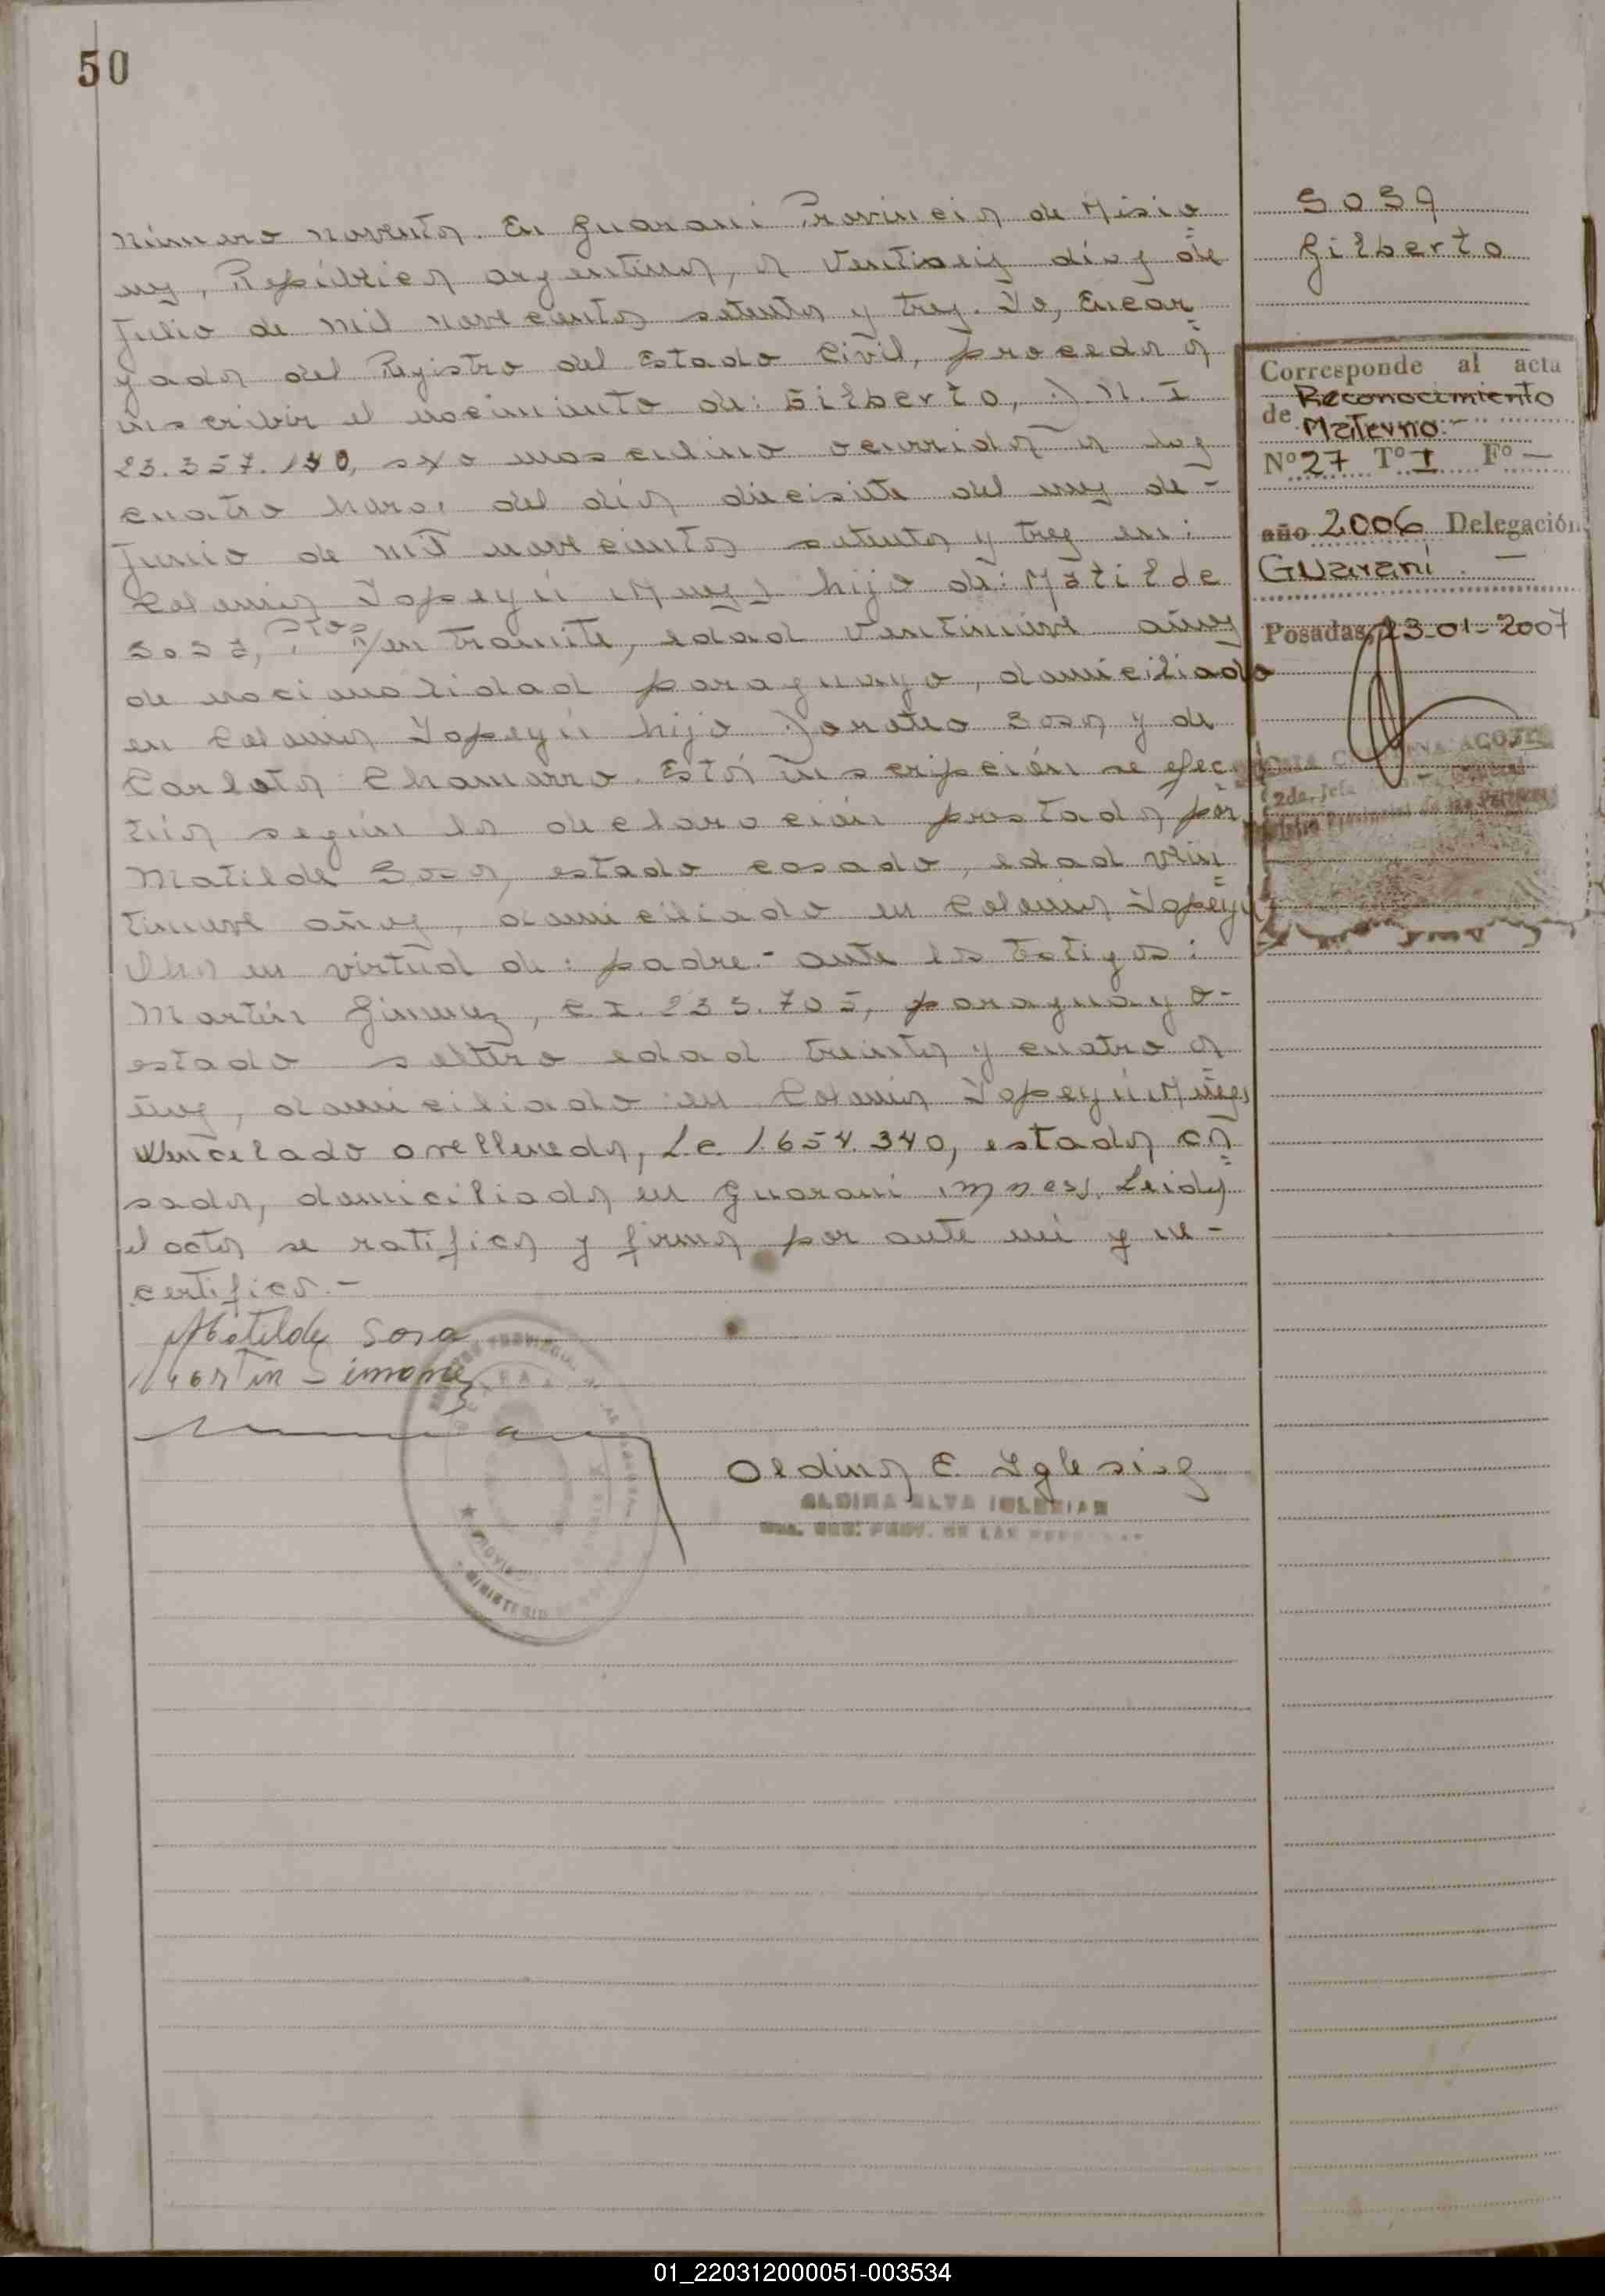 50
Número noventa. En Guaraní Provincia de Misio
nes, República argentina, a Ventiseis días de
Julio de mil novecientos setenta y tres. Yo, Encar
gada del Registro del Estado Civil, procedo a
inscribir el nacimiento de: Gilberto, D.N.I
23.357.130, sexo masculino ocurrido a las
cuatro horas del día diecisiete del mes de-
Junio de mil novecientos setenta y tres en:
Colonia Yapeyú Mnes hijo de: Matilde
Sosa, en tramite, edad ventinueve años
de nacionalidad paraguayo, domiciliado
en Colonia Yapeyú hijo Doroteo Sosa y de
Carlota Chamarro. Esta inscripción se efec
túa según la declaración prestada por
Matilde Sosa, estado casado, edad vein
tinueve años, domiciliado en Colonia Yapeyú
en virtud de: padre.- ante los testigos:
Martín Gimenez, C.I. 235.705, paraguayo-
estado soltero edad treinta y cuatro a
ños, domiciliado en Colonia Yapeyú Mnes
Wencelado avellaneda, L.e 1.654.340, estado ca
sado, domiciliado en Guaraní mnes. Leida
el acta se ratifica y firma por ante mí y se-
certifico.-
Matilde Sosa
Martin Simone
Oldina E. Yglesias
ALDINA ELVA IGLESIAS
SOSA
Gilberto
Corresponde al acta
de Reconocimiento
Materno.-
Nº 27 Tº I Fº —
año 2006 Delegación
Guaraní. —
Posadas, 23-01-2007
01_220312000051-003534